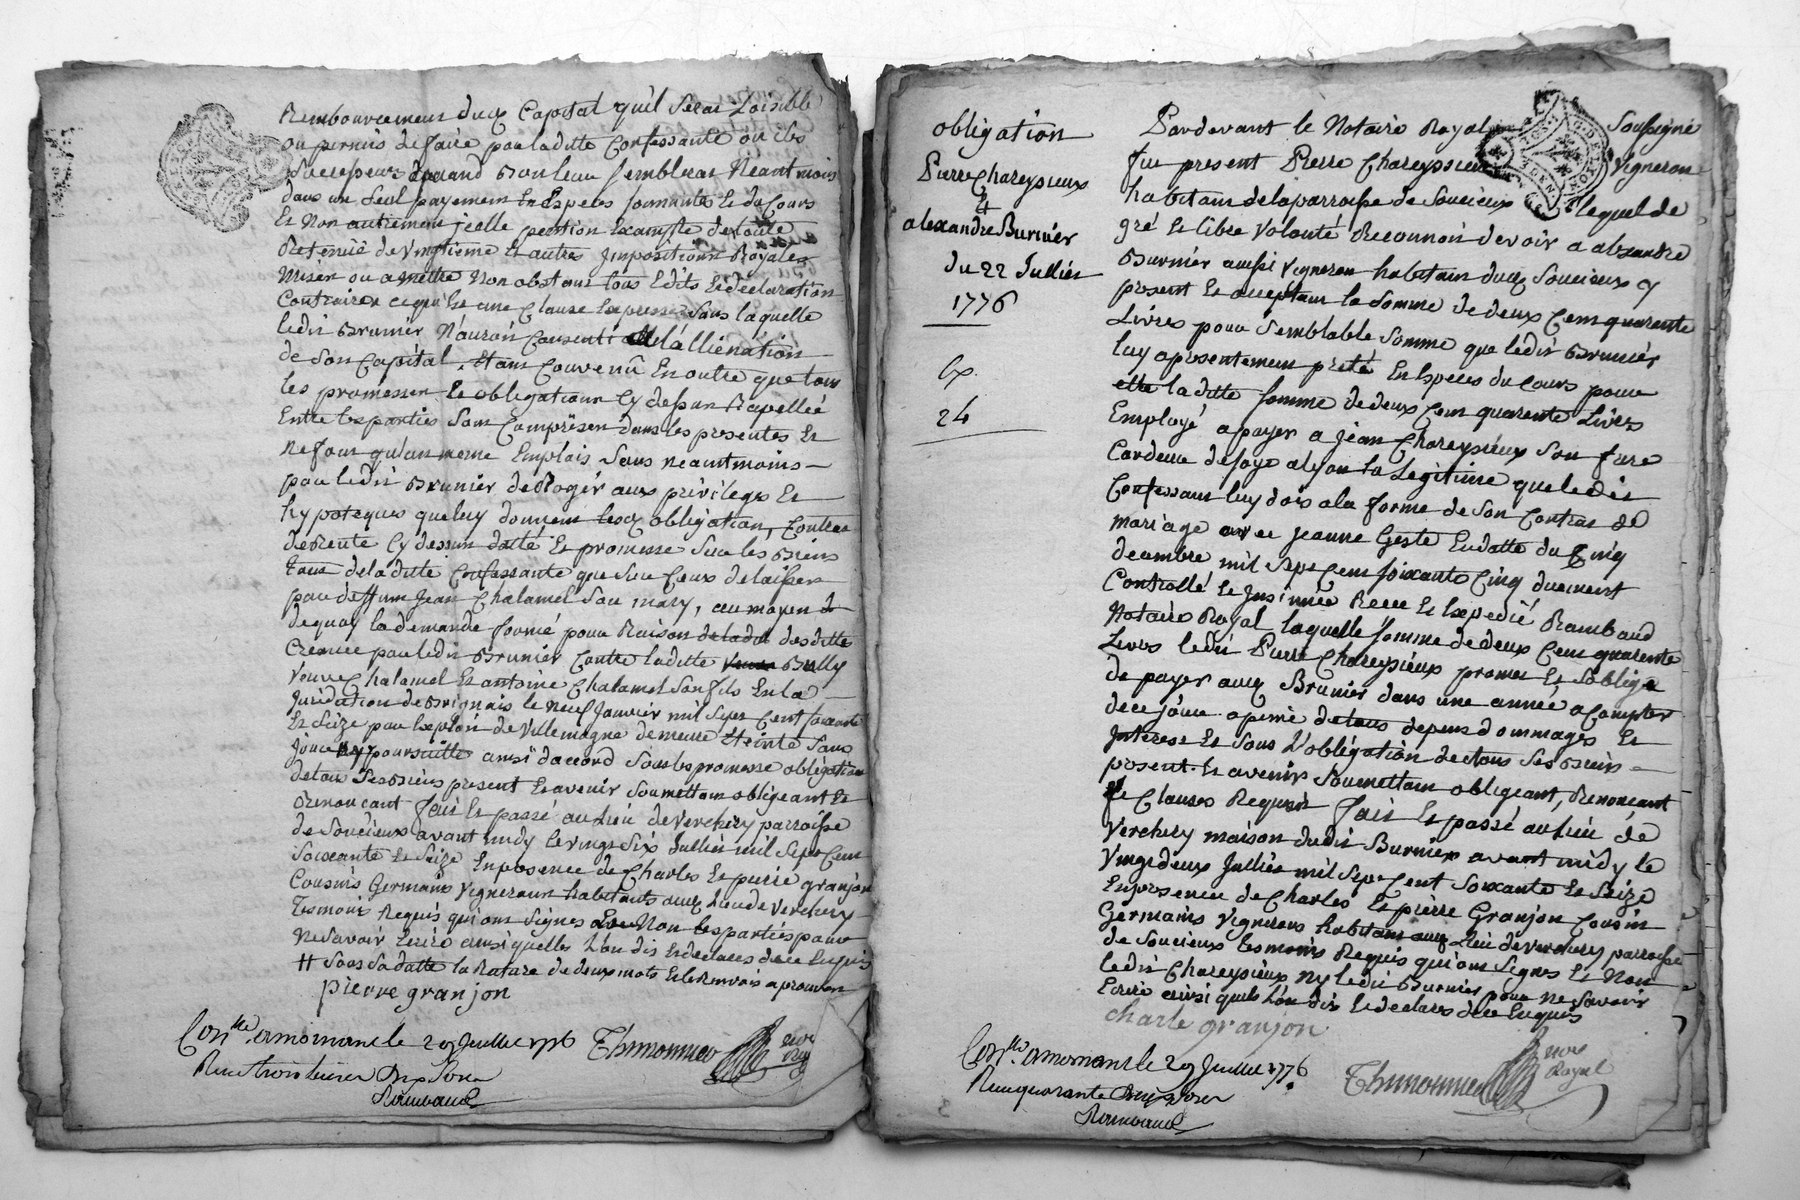 Remboursement dud Capital qu'il seras Loisible
ou permis defaire pour laditte Confessante ou ses
Successeurs quand Bon leur sembleras Neantmois
dans un seul payement En Especes sonnantes Et du Cours
Et Non autrement jcelle pention Exampte de toute
Retenüe de Vingtieme Et autres jmpositions Royales
Mises ou amettre Non obstant tous Edits Et declaration
Contraires cequi Est une Clause Expresse sans laquelle
ledit Brunier N'auroit Consenti a l'alliénation
de son Capital. Etant Convenû En outre que tous
les promesses Et obligations Cy dessus Rapellée
Entre les parties sont Comprises dans les presentes Et
ne font qu'un meme Emplois sans neantmoins
pour ledit Brunier deRogér aux privileges Et
hypoteques que luy donnent lesd obligation, Contrat
deRente Cy dessus datté Et promesse sur les Biens
tant deladitte Confessante que sur Ceux delaissés
par deffunt Jean Chalamel son mary, au moyen de
dequoy la demande formé pour Raison deladit desditte
Creance par ledit Brunier Contre laditte Bully
Veuve Chalamel Et antoine Chalamel son fils En la
Juridiction de Brignais le neuf Janvier mil sept Cent soixante
Et Seize par Exploit de Villemagne demeure Eteinte sans
poursuitte ainsi daccord sous les promesse obligation
detous ses Biens present Et avenir soumettant obligeant Et
Renonçant fait Et passé au Lieu de Verchery parroisse
de Soucieux avant midy le vingt six Juillet mil Sept Cent
Soixante Et Seize En presence de Charles Et pierre granjon
Cousins Germains Vignerons habitants aud Lieu de Verchery
Temoins Requis qui ont Signés Et Non les parties pour
Ne Savoir Ecrire ainsi quelles L'on dit Et declaré de ce Enquis
# Sous Sa datte la Rature de deux mots Et le Renvois aprouvés
pierre granjon
Con.lle amornant le 29 Juillet 1776 Thimonnier nore
Reçu trois livres dix Sous Roy
Rambaud
obligation
Pierre Chareysieux
Et
alexandre Burnier
du 22 Julliet
1776
Ex.
24
Pardevant le Notaire Royal Soussigné
fut present Pierre Chareysieux Vigneron
habitant de la parroisse de Soucieux lequel de
gré Et libre Volonté Reconnoit devoir a alexandre
Burnier aussi Vigneron habitant dud Soucieux y
present Et acceptant la Somme de deux Cent quarente
Livres pour Semblable Somme que ledit Brunier
luy apresentement preté En Especes du Cours pour
Etre laditte somme de deux Cent quarente Livres
Employé apayer a jean Chareysieux Son frere
Cardeur de soye alyon la Legitime que ledit
Confessant luy doit ala forme de Son Contrat de
mariage avec jeanne Geste En datte du Cinq
decembre mil Sept Cent soixante Cinq duement
Controllé Et jnsinuée Recu Et Expedié Rambaud
Notaire Royal laquelle somme de deux Cent quarente
Livres ledit Pierre Chareysieux promet Et S'oblige
de payer aud Brunier dans une année a Compter
dece jour apeine detous depens dommages Et
jnterest Et Sous L'obligation detous Ses Biens
present Et avenir Soumettant obligeant, Renonçant
Clauses Requises fait Et passé au Lieu de
Verchery maison dudit Burnier avant midy le
Vingt deux Julliet mil Sept Cent Soixante Et Seize
En presence de Charles Et pierre Granjon Cousin
Germains Vignerons habitant aud Lieu de Verchery parroisse
de Soucieux temoins Requis qui ont Signés Et Non
ledit Chareysieux ny ledit Burnier pour ne Savoir
Ecrire ainsi quils L'on dit Et declaré de ce Enquis
charle granjon
Con.lle amornant le 29 Juillet 1776 Thimonnier nore
Reçu quarante Cinq Sous Royal
Rambaud